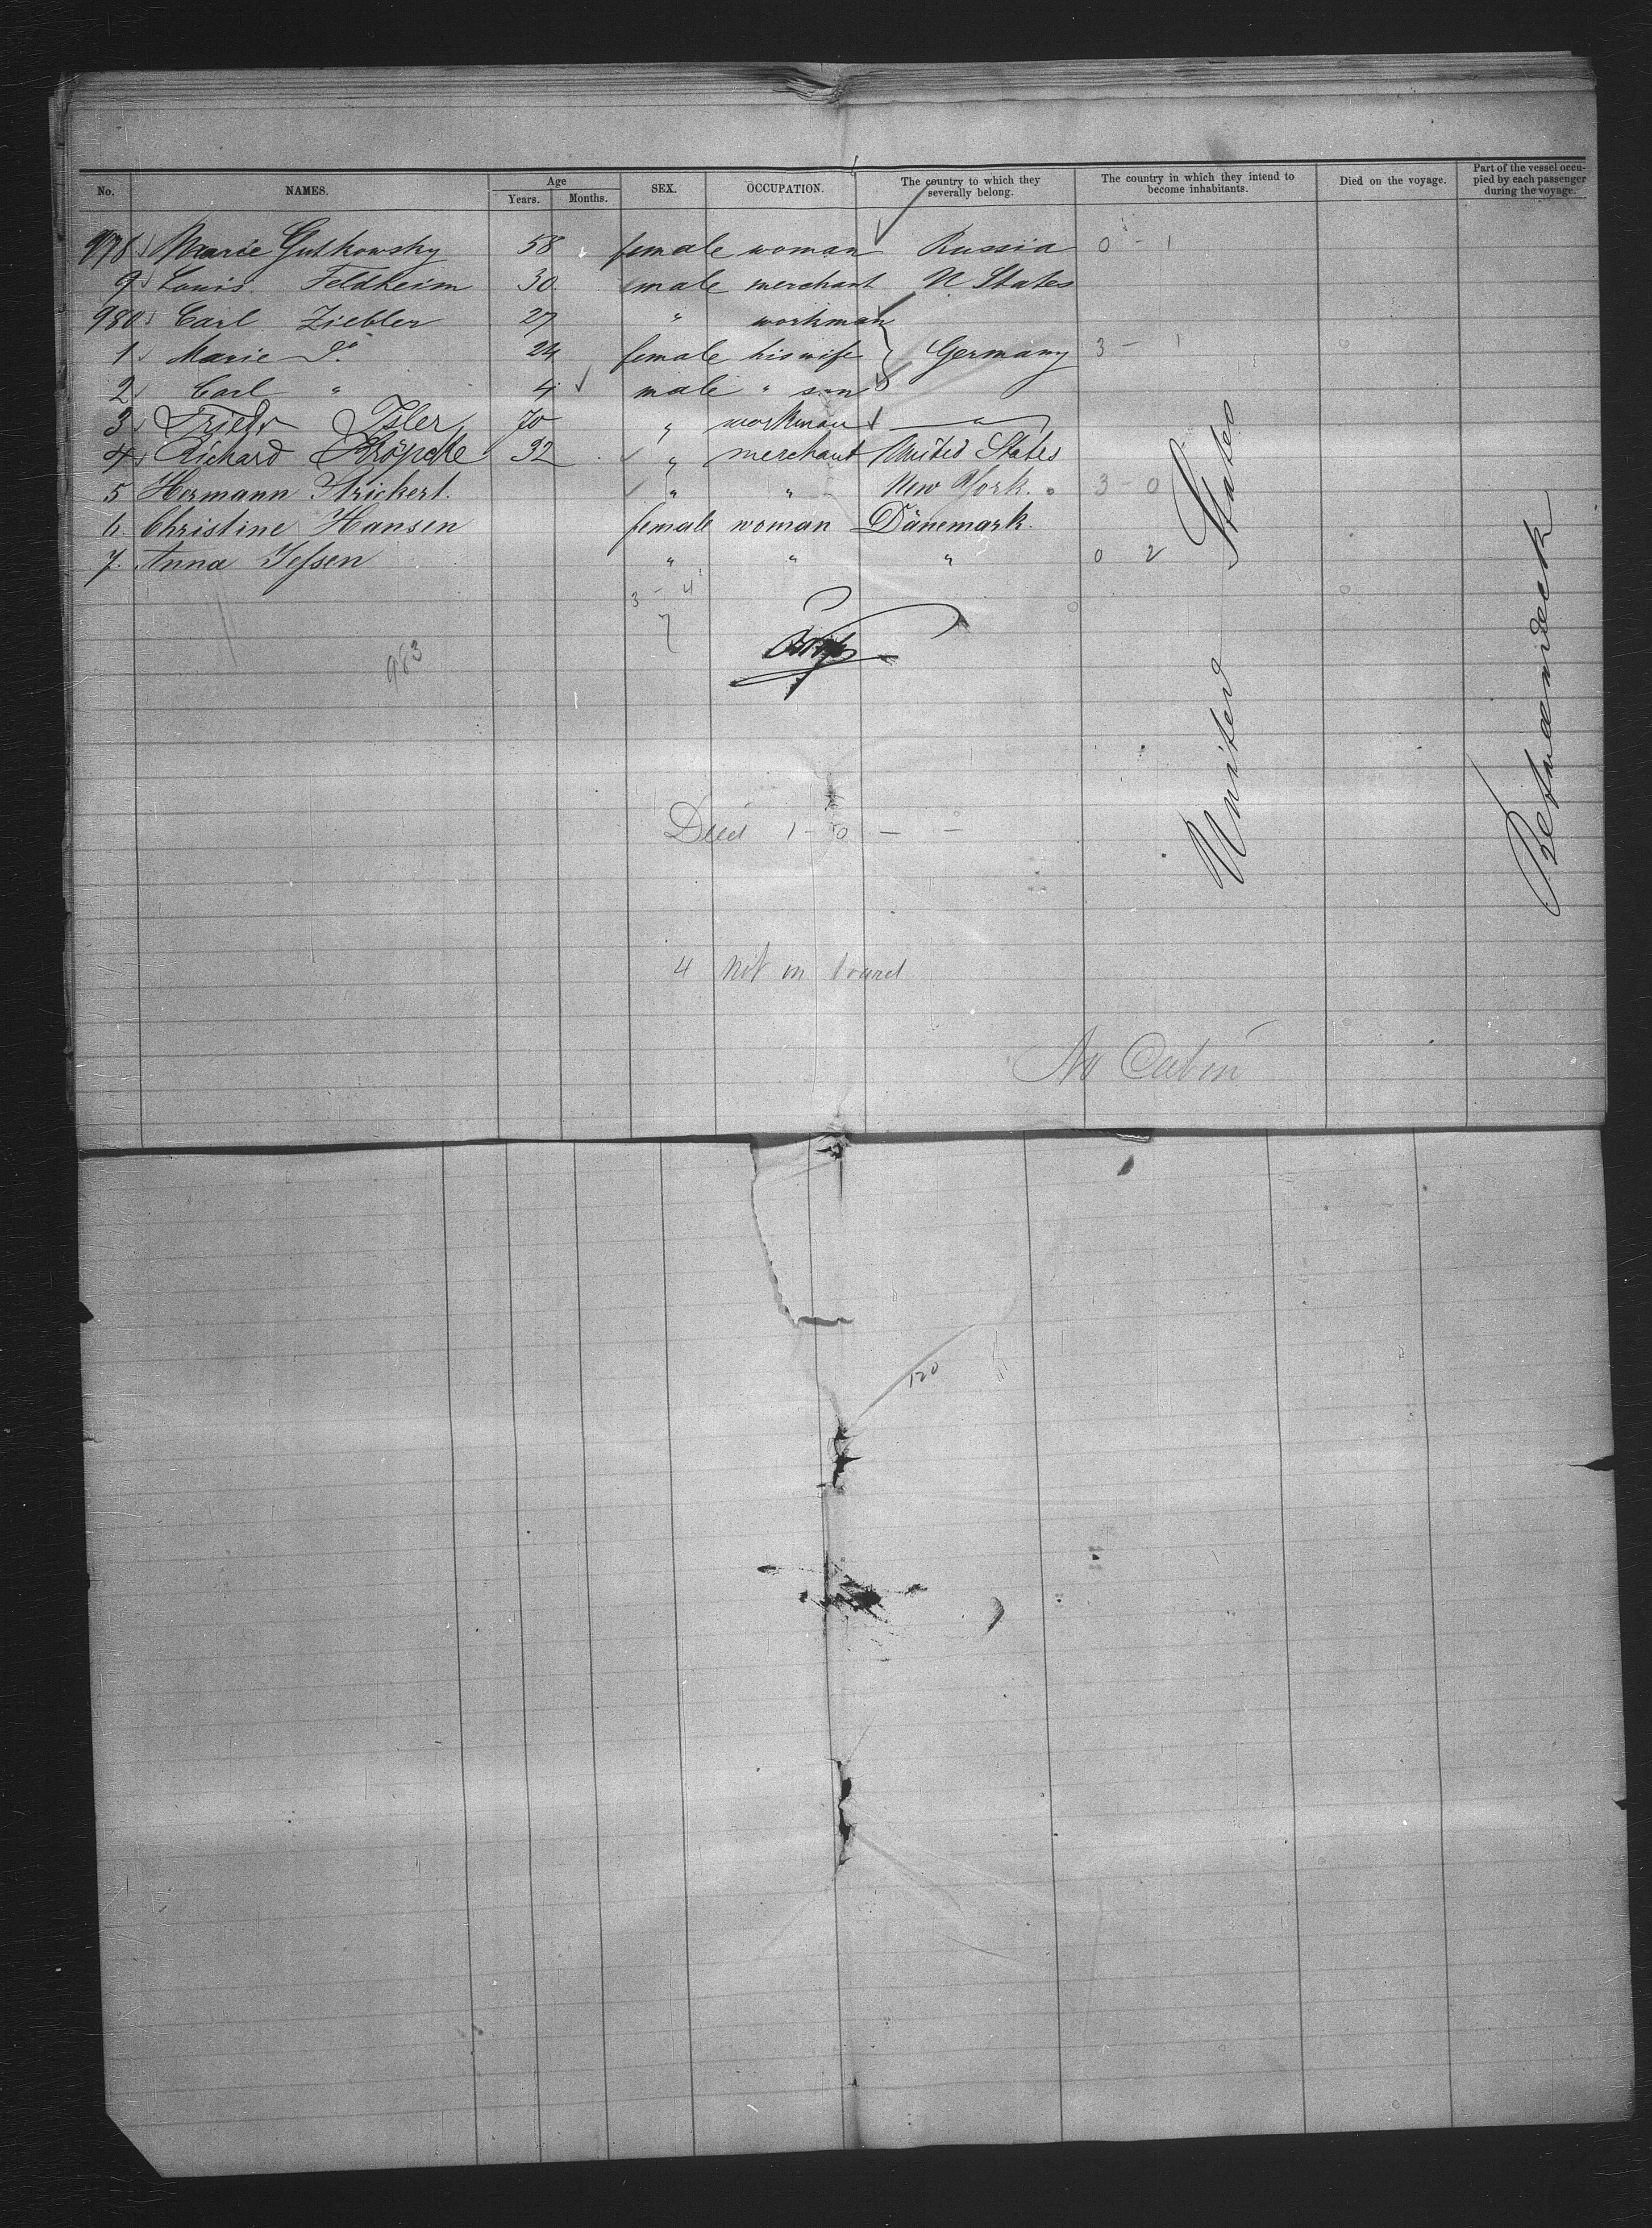 No. NAMES. Age Years. Months. SEX. OCCUPATION. The country to which they severally belong. The country in which they intend to become inhabitants. Died on the voyage. Part of the vessel occupied by each passenger during the voyage.
978 Marie Gutkowsky 58 female woman Russia 0 - 1
9 Louis Feldheim 30 male merchant U States
980 Carl Ziebler 27 " workman
1 Marie Do 24 female his wife Germany 3 - 1
2 Carl " 4 male " son
3 Friedr Isler 70 " workman
4 Richard Kröpcke 32 " merchant United States
5 Hermann Strickert. " " New York. 3 - 0
6. Christine Hansen female woman Dänemark.
7. Anna Jessen " " " 0 2
3 - 4
7
983
United States
Betweendeck
Died 1 - 0 - -
4 not on board
No Cabin
120